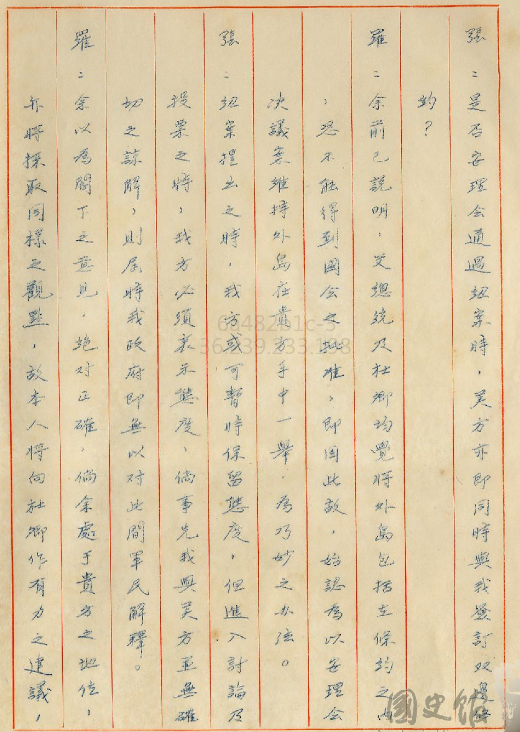 張：是否安理會通過紐案時，美方亦即同時與我簽訂双邊條
約？
羅：余前已說明：艾總統及杜卿均覺將外島包括在條約之內
，恐不能得到國會之批准，即因此故，始認為以安理會
決議案維持外島在貴方手中一舉，為巧妙之办法。
張：紐案提出之時，我方或可暫時保留態度，但進入討論及
投票之時，我方必須表示態度，倘事先我與美方並無確
切之諒解，則屆時我政府即無以對此間軍民解釋。
羅：余以為閣下之意見，絕对正確，倘余處于貴方之地位，
亦將採取同樣之觀點，故本人將向杜卿作有力之建議，
國史館